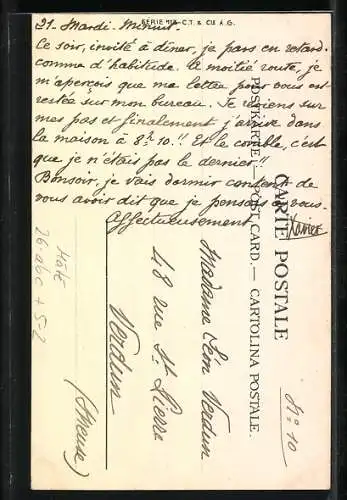 SERIE 718 - C.T. & CU A.G.
21 - Mardi - Minuit.
Ce soir, invité à dîner, je pars en retard.
comme d'habitude. A moitié route, je
m'aperçois que ma lettre pour vous est
restée sur mon bureau. Je reviens sur
mes pas et finalement j'arrive dans
la maison à 8h 10!! Et le comble, c'est
que je n'étais pas le dernier!!
Bonsoir, je vais dormir content de
vous avoir dit que je pensais à vous.
Affectueusement Xavier
CARTE POSTALE
POSTKARTE. — POST CARD. — CARTOLINA POSTALE.
No 10
Madame Léon Verdun
48 rue St. Pierre
Verdun
(Meuse)
26 abc + 5-2